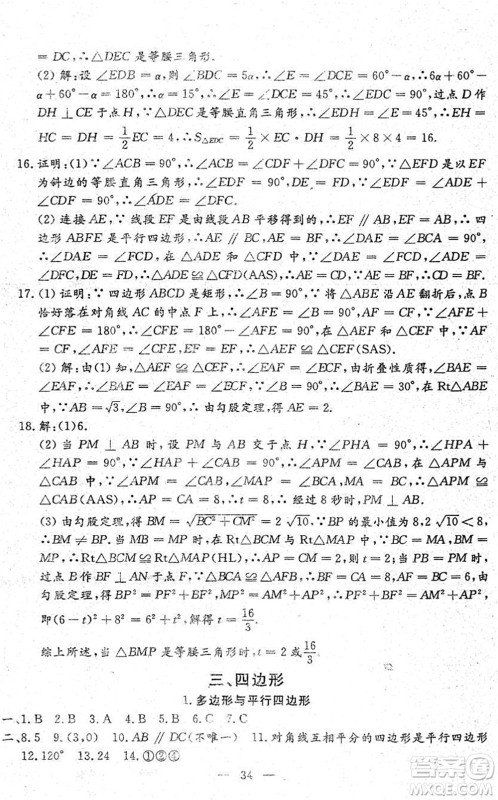 = DC,∴△DEC 是等腰三角形.
(2) 解:设 ∠EDB = α,则 ∠BDC = 5α,∴∠E = ∠DCE = 60°-α,∴6α+60°-
α+60°-α = 180°,∴α = 15°,∴∠E = ∠DCE = 60°-α = 45°,∴∠EDC = 90°,过点 D 作
DH ⊥ CE 于点 H,∵△DEC 是等腰直角三角形,∴∠EDH = ∠E = 45°,∴EH =
HC = DH = 1/2 EC = 4,∴S△EDC = 1/2 EC·DH = 1/2 × 8 × 4 = 16.
16.证明:(1)∵∠ACB = 90°,∴∠ACB = ∠FCD = 90°,∵△EFD 是以 EF
为斜边的等腰直角三角形,∴∠EDF = 90°,DE = FD,∴∠ADE +
∠FDC = 90°,∠FDC + ∠DFC = 90°,∴∠ADE = ∠DFC.
(2) 连接 AE,∵ 线段 EF 是由线段 AB 平移得到的,∴EF ∥ AB,EF = AB,∴ 四
边形 ABFE 是平行四边形,∴AE ∥ BF,AE = BF,∴∠DAE = ∠BCA = 90°,∴∠DAE =
∠DFC,FD = DE,∴△ADE ≌ △CFD(AAS),∴AE = CD,∵AE = BF,∴CD = BF.
17.(1) 证明:∵ 四边形 ABCD 是矩形,∴∠B = 90°,∵ 将 △ABE 沿 AE 翻折后,点 B
恰好落在对角线 AC 的中点 F 上,∴∠AFE = ∠B = 90°,AF = CF,∵∠AFE +
∠CFE = 180°,∴∠CFE = 180°-∠AFE = 90°,在 △AFE 和 △CFE 中,∵AF =
CF,∠AFE = ∠CFE,FE = FE,∴△AEF ≌ △CEF(SAS).
(2) 解:由(1) 知,△AEF ≌ △CEF,∴∠EAF = ∠ECF,由折叠性质得,∠BAE =
∠EAF,∴∠BAE = ∠EAF = ∠ECF,∵∠B = 90°,∴∠BAE = 30°,在 Rt△ABE
中,∵AB = √3,∠B = 90°,∴BE = 1,AE = 2,∵△AEF ≌ △CEF,∴CE = 2.
18.解:(1)6.
(2) 当 PM ⊥ AB 时,设垂足为 H,如图,则∵∠PHA = 90°,∴∠HPA +
∠HAP = 90°,∵∠HAP + ∠B = 90°,∴∠B = ∠HPA,∵AM = BC = 8,
∴Rt△ACB ≌ Rt△MAP,∴AP = CA = 8,∴t = 8,∴ 经过 8 秒时,PM ⊥
AB.
(3) 由勾股定理,得 BM = √(BC²+CM²) = 2√10,∵BP 的最小值为 8,2√10 < 8.
5,∴BM ≠ BP,∴当 △BMP 是等腰三角形时,若 BM = MP,∵BC = MA,BM =
MP,∴Rt△BMC ≌ Rt△MAP(HL),∴AP = CM = 2,即 t = 2;当 PB = PM 时,
过点 B 作 BF ⊥ AN 于点 F,∵AP = t,AF = BC = 6,∴PF = 6-t,∵BF = AC =
AM = 8,由勾股定理,得 BP² = PF²+BF²,MP² = AP²+AM²,∴PF²+BF² = AP²+AM²,
即(6-t)²+8² = 6²+t²,解得 t = 16/3.
综上所述,当 △BMP 是等腰三角形时,t = 2 或 16/3.
三、四边形
1.多边形与平行四边形
一、1.B 2.B 3.A 4.C 5.B 6.C 7.C
二、8.5 9.(3,0) 10.AB ∥ DC(不唯一) 11.对角线互相平分的四边形是平行四边形
12.120° 13.24 14.①②④
— 34 —